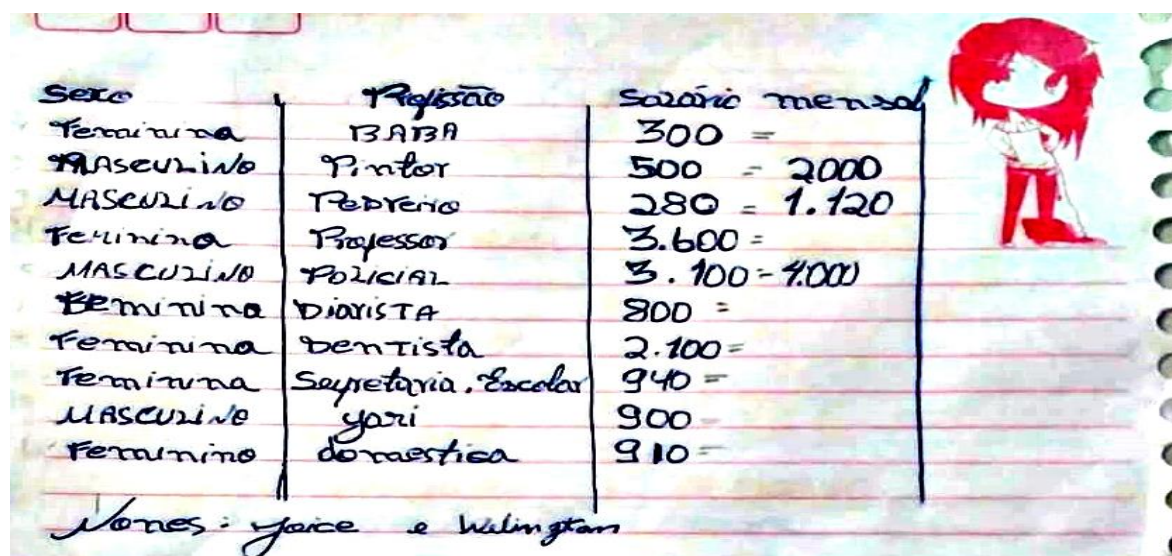 Sexo Profissão Sazário mensal
Feminina BABA 300 =
MASCULINO Pintor 500 = 2000
MASCULINO PEDreiro 280 = 1.120
Feminina Professor 3.600 =
MASCULINO POLICIAL 3.100 - 4.000
Feminina DiarisTA 800 =
Feminina DenTista 2.100 =
Feminina Secretaria. Escolar 940 =
MASCULINO gari 900 -
Feminino domestica 910 =
Nomes: Joice e